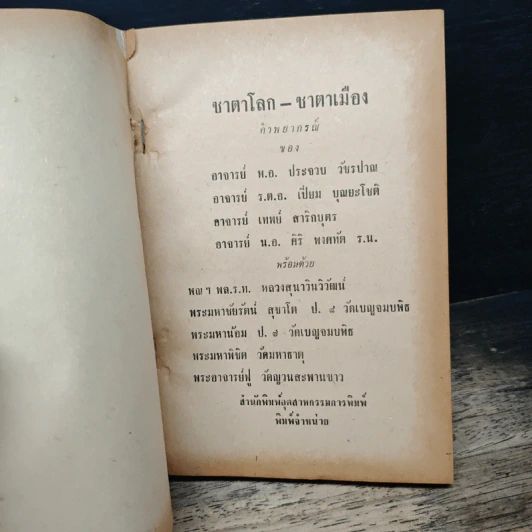 ชาตาโลก – ชาตาเมือง
คำพยากรณ์
ของ
อาจารย์ พ.อ. ประจวบ วัชรปาณ
อาจารย์ ร.ต.อ. เปี่ยม บุณยะโชติ
อาจารย์ เทพย์ สาริกบุตร
อาจารย์ น.อ. ศิริ พงศทัต ร.น.
พร้อมด้วย
พณฯ พล.ร.ท. หลวงสุนาวินวิวัฒน์
พระมหาชัยรัตน์ สุขาโต ป. ๔ วัดเบญจมบพิธ
พระมหาน้อม ป. ๗ วัดเบญจมบพิธ
พระมหาพิชิต วัดมหาธาตุ
พระอาจารย์ฟู วัดญวนสะพานขาว
สำนักพิมพ์อุตสาหกรรมการพิมพ์
พิมพ์จำหน่าย